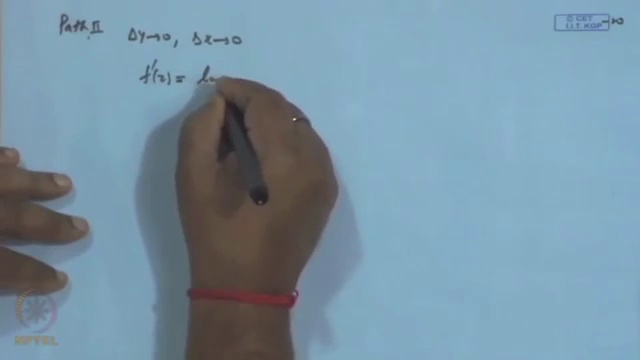 Path II
Δy→0, Δx→0
f'(z) =
© CET
I.I.T. KGP
NPTEL